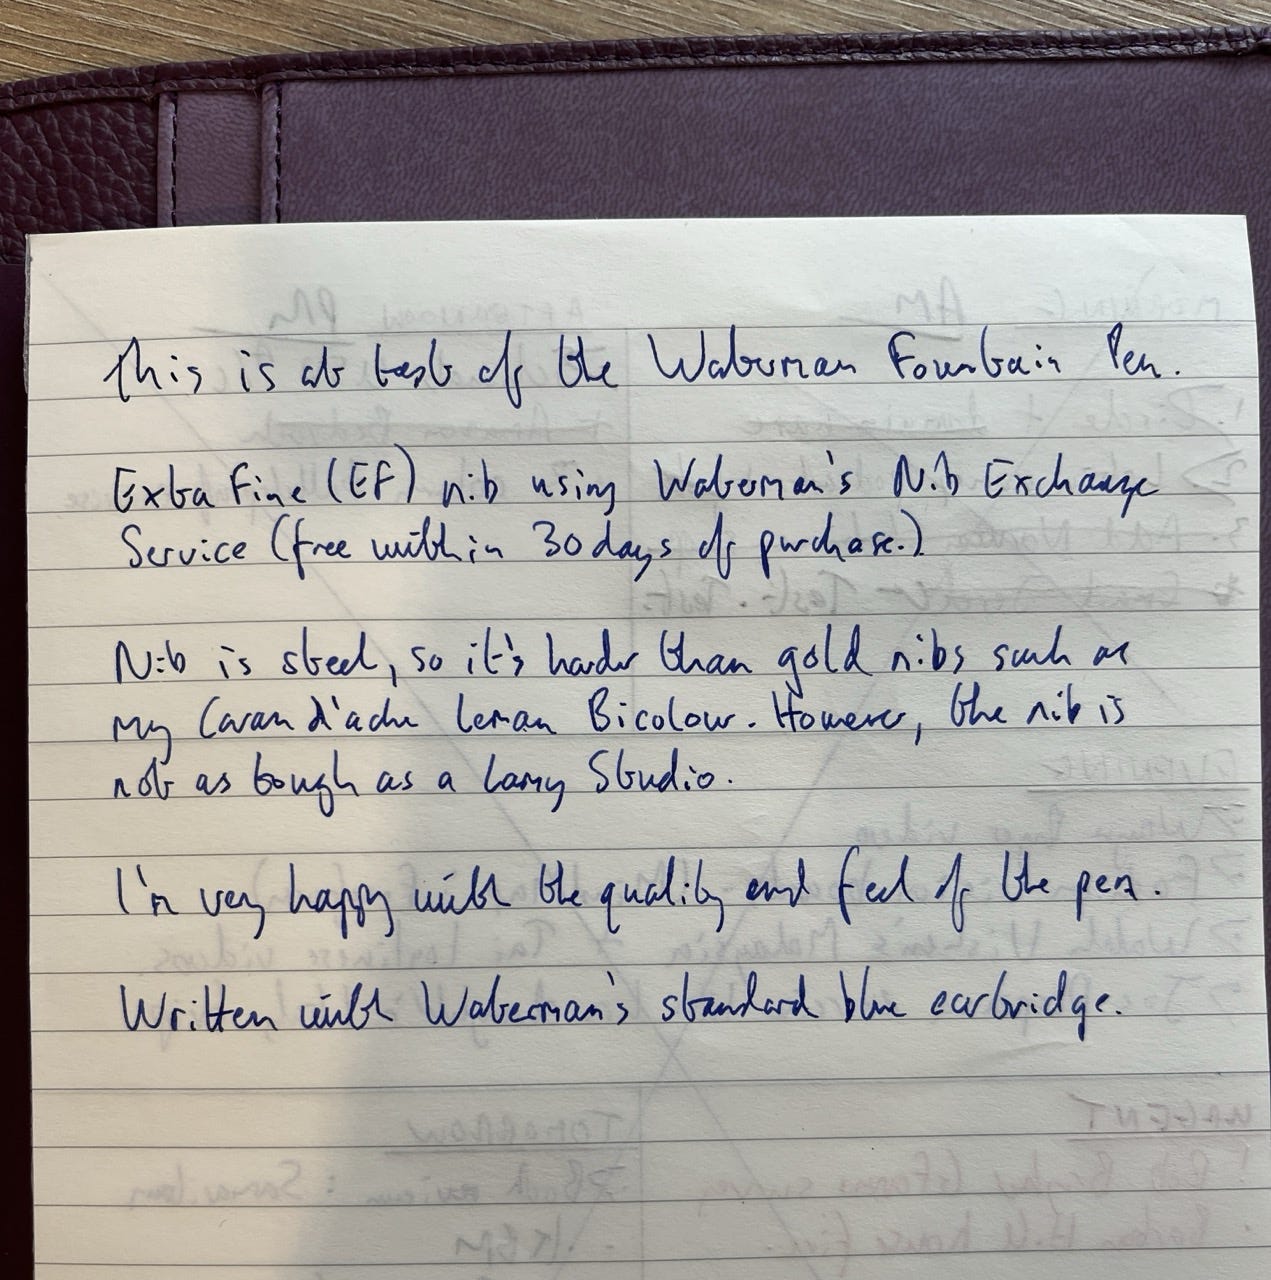 This is at test of the Waterman Fountain Pen.
Extra Fine (EF) nib using Waterman's Nib Exchange
Service (free within 30 days of purchase.)
Nib is steel, so it's harder than gold nibs such as
my Caran d'ache Leman Bicolour. However, the nib is
not as tough as a Lamy Studio.
I'm very happy with the quality and feel of the pen.
Written with Waterman's standard blue cartridge.